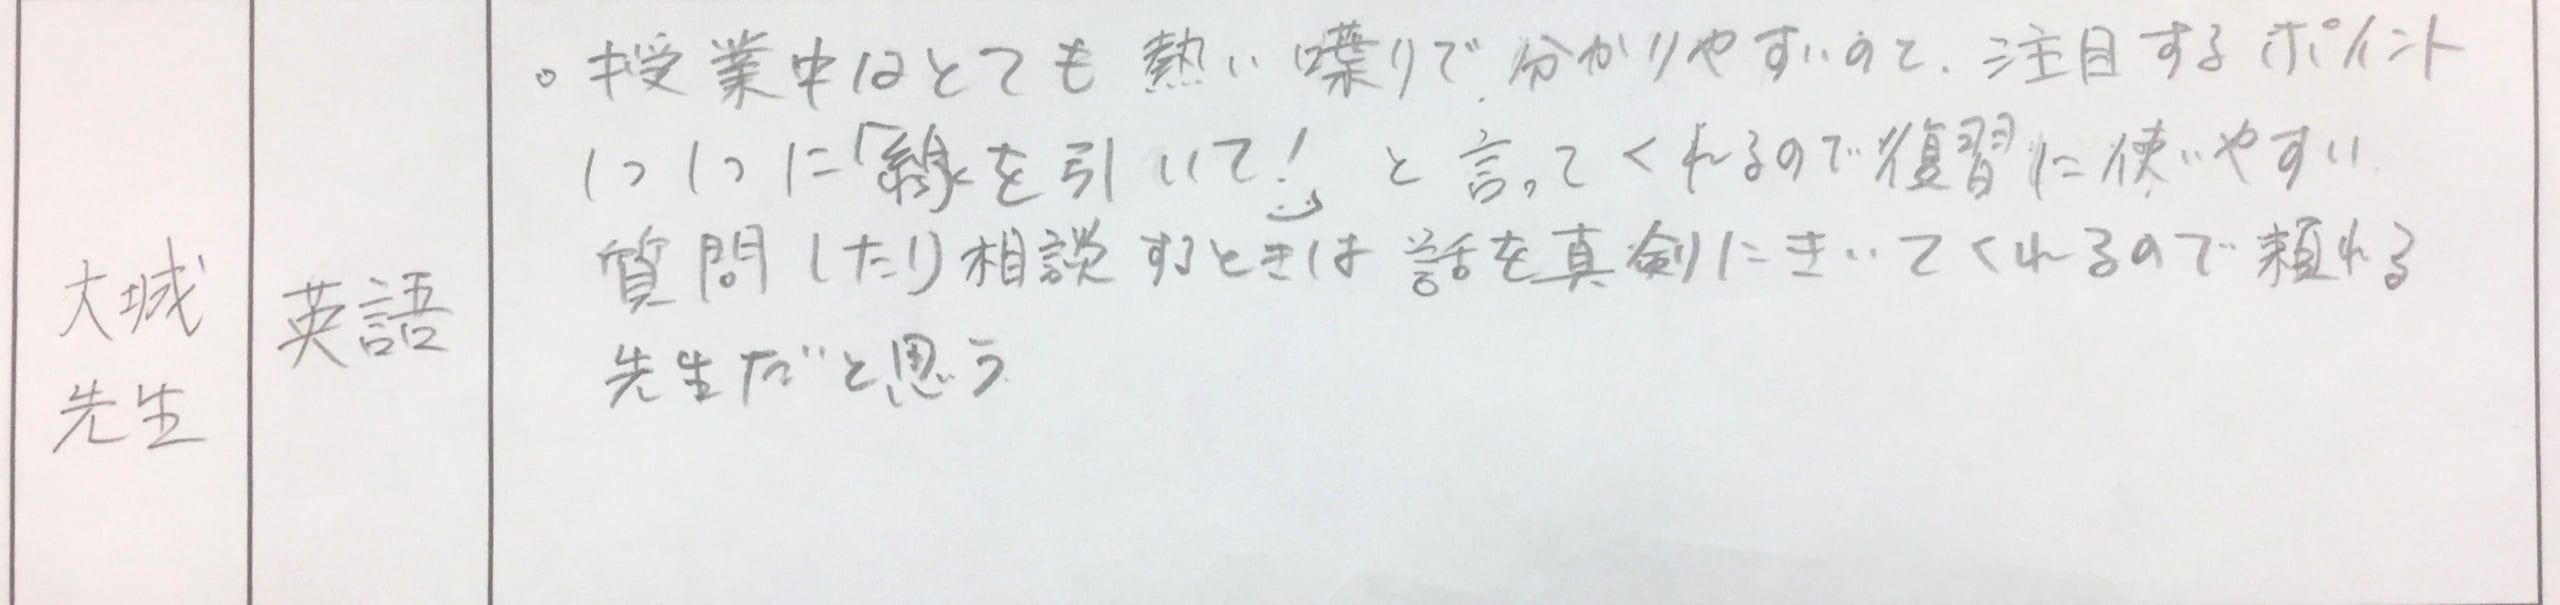 大城
先生
英語
。授業中はとても熱い喋りで、分かりやすいのと、注目するポイント
1つ1つに「線を引いて！」と言ってくれるので復習に使いやすい
質問したり相談するときは話を真剣にきいてくれるので頼れる
先生だと思う